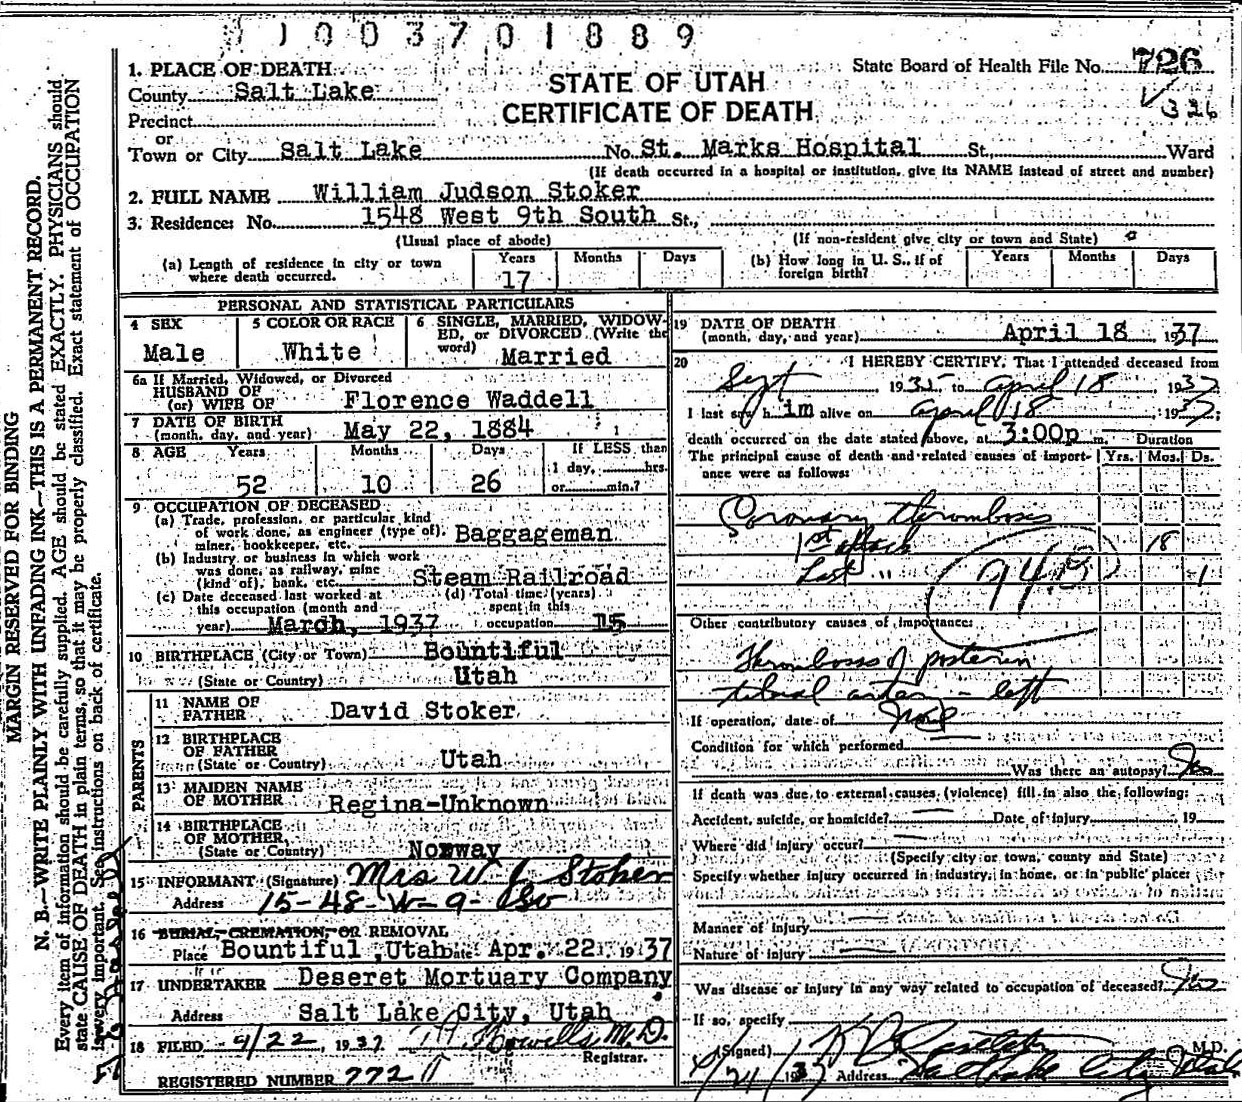 01003701889
State Board of Health File No. 726
326
STATE OF UTAH
CERTIFICATE OF DEATH
1. PLACE OF DEATH
County Salt Lake
Precinct
or
Town or City Salt Lake No. St. Marks Hospital St., Ward
(If death occurred in a hospital or institution, give its NAME instead of street and number)
2. FULL NAME William Judson Stoker
3. Residence: No. 1548 West 9th South St.,
(Usual place of abode) (If non-resident give city or town and State)
(a) Length of residence in city or town where death occurred. Years 17 Months Days
(b) How long in U. S., if of foreign birth? Years Months Days
PERSONAL AND STATISTICAL PARTICULARS
4 SEX Male
5 COLOR OR RACE White
6 SINGLE, MARRIED, WIDOWED, or DIVORCED (Write the word) Married
6a If Married, Widowed, or Divorced
HUSBAND OF
(or) WIFE OF Florence Waddell
7 DATE OF BIRTH
(month, day, and year) May 22, 1884
8 AGE Years 52 Months 10 Days 26 If LESS than 1 day, hrs. or min.?
9 OCCUPATION OF DECEASED
(a) Trade, profession, or particular kind of work done, as engineer (type of), miner, bookkeeper, etc. Baggageman
(b) Industry or business in which work was done, as railway, mine (kind of), bank, etc. Steam Railroad
(c) Date deceased last worked at this occupation (month and year) March, 1937
(d) Total time (years) spent in this occupation 15
10 BIRTHPLACE (City or Town) Bountiful
(State or Country) Utah
PARENTS
11 NAME OF FATHER David Stoker
12 BIRTHPLACE OF FATHER
(State or Country) Utah
13 MAIDEN NAME OF MOTHER Regina-Unknown
14 BIRTHPLACE OF MOTHER
(State or Country) Norway
15 INFORMANT (Signature) Mrs W J Stoker
Address 15-48-W-9-So
16 BURIAL, CREMATION, OR REMOVAL
Place Bountiful, Utah Date Apr. 22, 1937
17 UNDERTAKER Deseret Mortuary Company
Address Salt Lake City, Utah
18 FILED 4/22, 1937 Howells, M.D.
Registrar.
REGISTERED NUMBER 772
19 DATE OF DEATH
(month, day, and year) April 18, 1937
20 I HEREBY CERTIFY, That I attended deceased from
Sept 1935 to April 18 1937
I last saw him alive on April 18 1937
death occurred on the date stated above, at 3:00p m. Duration
The principal cause of death and related causes of importance were as follows: Yrs. Mos. Ds.
Coronary thrombosis
1st attack 18
Last " 1
94B
Other contributory causes of importance:
Thrombosis of posterior
tibial artery - left
If operation, date of None
Condition for which performed
Was there an autopsy? No
If death was due to external causes (violence) fill in also the following:
Accident, suicide, or homicide? Date of injury 19
Where did injury occur?
(Specify city or town, county and State)
Specify whether injury occurred in industry, in home, or in public place:
Manner of injury
Nature of injury
Was disease or injury in any way related to occupation of deceased? No
If so, specify
(Signed) M.D.
4/21/1937 Address Salt Lake City Utah
MARGIN RESERVED FOR BINDING
N. B.—WRITE PLAINLY WITH UNFADING INK—THIS IS A PERMANENT RECORD.
Every item of information should be carefully supplied. AGE should be stated EXACTLY. PHYSICIANS should
state CAUSE OF DEATH in plain terms, so that it may be properly classified. Exact statement of OCCUPATION
is very important. See instructions on back of certificate.